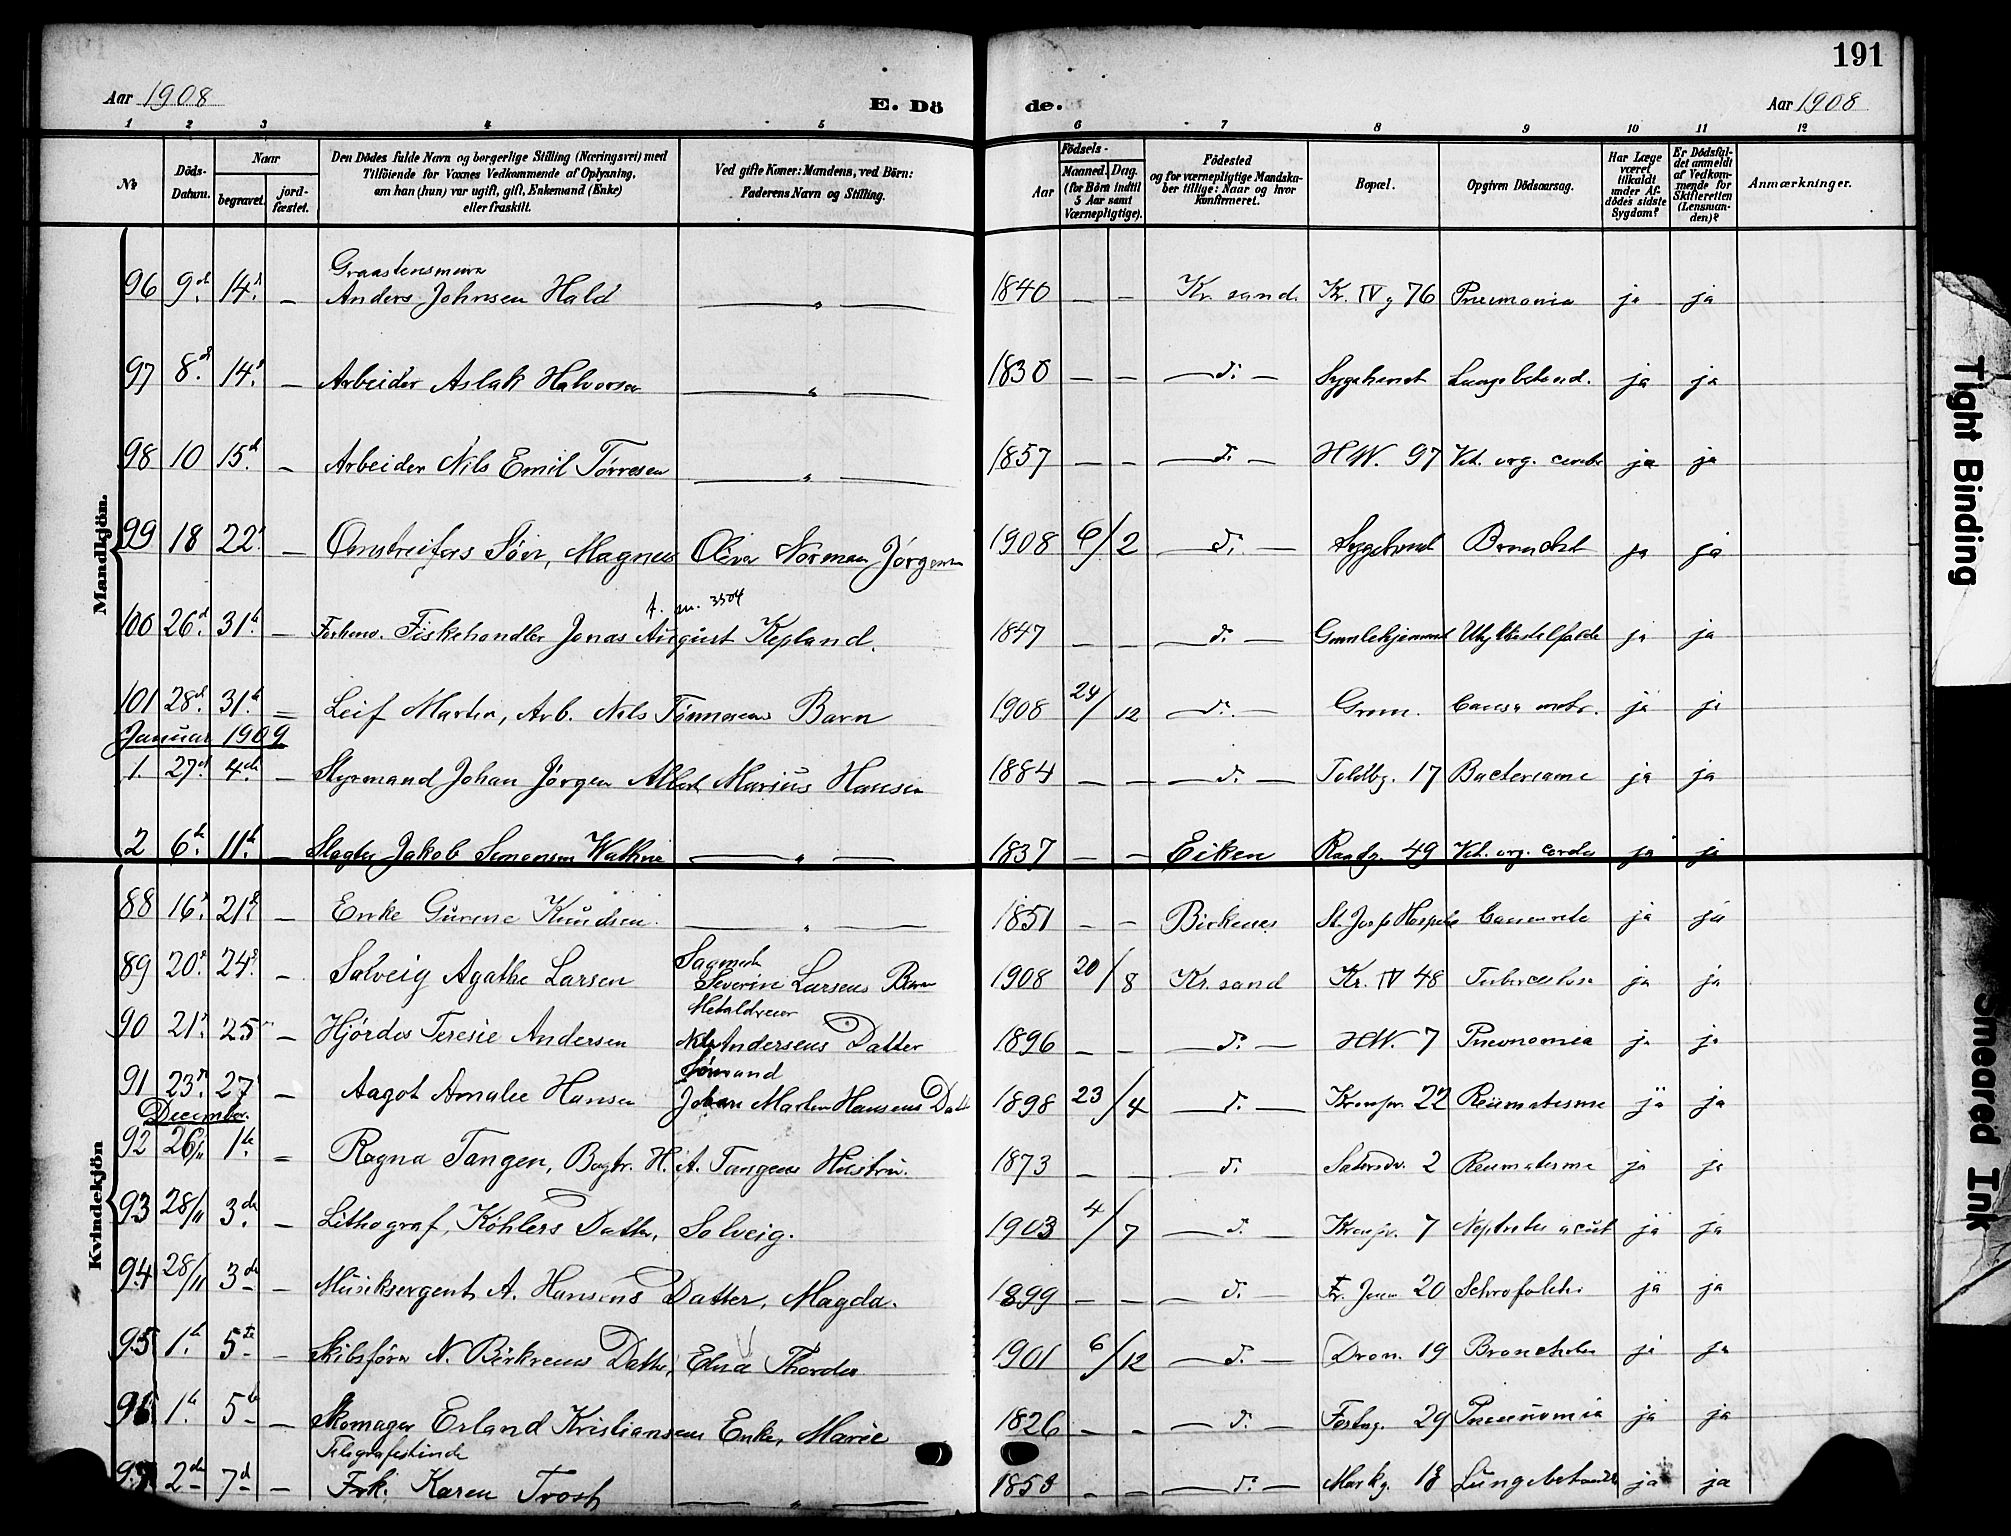 191
Aar 1908 E. Dö de. Aar 1908
1 2 3 4 5 6 7 8 9 10 11 12
No
Döds-Datum.
Naar
begravet.
jord-fæstet.
Den Dödes fulde Navn og borgerlige Stilling (Næringsvei) med
Tilföiende for Voxnes Vedkommende af Oplysning,
om han (hun) var ugift, gift, Enkemand (Enke)
eller fraskilt.
Ved gifte Koner: Mandens, ved Börn:
Faderens Navn og Stilling.
Födsels-
Aar
Maaned. Dag.
(for Börn indtil
5 Aar samt
Værnepligtige).
Födested
og for værnepligtige Mandska-
ber tillige: Naar og hvor
konfirmeret.
Bopæl.
Opgiven Dödsaarsag.
Har Læge
været
tilkaldt
under Af-
dödes sidste
Sygdom?
Er Dödsfal-
det anmeldt
af Vedkom-
mende for
Skifteretten
(Lensman-
den)?
Anmærkninger.
Mandkjön.
96 9d. 14d. — Anders Johnsen Hald — " — 1840 — — Kr.sand. Kr. IV g 76 Pneumonia ja ja
97 8d. 14d. — Arbeider Aslak Halvorsen — " — 1830 — — — d. — Sygehuset Lungebetænd. ja ja
98 10 15d. — Arbeider Nils Emil Tørresen — " — 1857 — — — d. — H.W. 97 Vit. org. ja ja
99 18 22d. — Omstreifers Søn, Magnus Oliver Norman Jørgensen 1908 6/2 — d. — Sygehuset ja ja
t. nr. 3504
100 26d. 31te. — Forhenv. Fiskehandler Jonas August Kepland. 1847 — — — d. — Gamlehjemmet ja ja
101 28d. 31te. = Leif Martin, Arb. Nils Tønnesens Barn 1908 24/12 — d. — ja ja
Januar 1909
1. 27d. 4de. — Styrmand Johan Jørgen Albert Marius Hansen 1884 — — — d. — Toldbg. 17 ja ja
2 6te. 11te. — Slagter Jakob Simonsen Watne — " — 1837 — — Eiken Raadg. 49 Vit. org. cordis ja ja
Kvindekjön
88 16d. 21d. — Enke Gurine Knudsen. — " — 1851 — — Birkenes St. Josephs Hospital ja ja
Sagmester
89 20d. 24d. — Solveig Agathe Larsen Severin Larsens Barn 1908 20/8 Kr.sand Kr. IV 48 Tuberculose ja ja
Metaldreier
90 21d. 25 — Hjördis Teresie Andersen Nils Andersens Datter 1896 — — — d. — H.W. 7 Pneunomia ja ja
Sömand
91 23d. 27 — Aagot Amalie Hansen Johan Martin Hansens Datter 1898 23/4 — d. — Kronpr. 22 Reumatisme ja ja
December.
92 26/11 1te. = Ragna Tangen, Bogtr. H. A. Tangens Hustru. 1873 — — — d. Sætersdv. 2 Reumatisme ja ja
93 28/11 3de. — Lithograf, Köhlers Datter, Solveig. 1903 4/7 — d. Kronpr. 7 Nephritis acut ja ja
94 28/11 3de — Musiksergent A. Hansens Datter, Magda. 1899 — — — d. 20 ja ja
95 1te. 5te — Skibsförer N. Birkrems Datter, Elna Thordis 1901 6/12 — d. — Dron. 19 Bronchitis ja ja
96 1te 5te — Skomager Erland Kristiansens Enke, Marie 1826 — — — d. — Festng. 29 Pneunomia ja ja
Telegrafistinde
97 2de 7d — Frk. Karen Trosh — " — 1858 — — — d. — Markg. 18 Lungebetændelse ja ja
Tight Binding
Smeared Ink